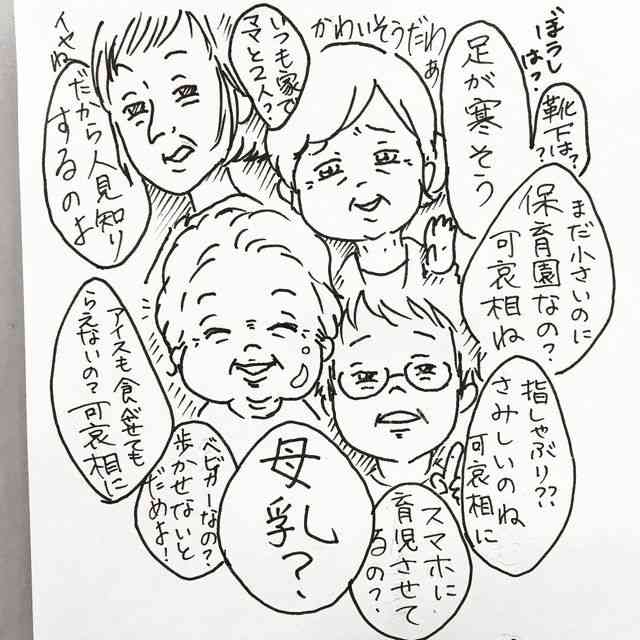 ぼうしは?
靴下は??
足が寒そう
かわいそうだわぁ
いつも家で
ママと2人?
イヤね
だから人見知り
するのよ
まだ小さいのに
保育園なの?
可哀相ね
指しゃぶり??
さみしいのね
可哀相に
アイスも食べせても
らえないの?
可哀相に
ベビーカーなの?
歩かせないと
だめよ!
母
乳?
スマホに
育児させて
るの?